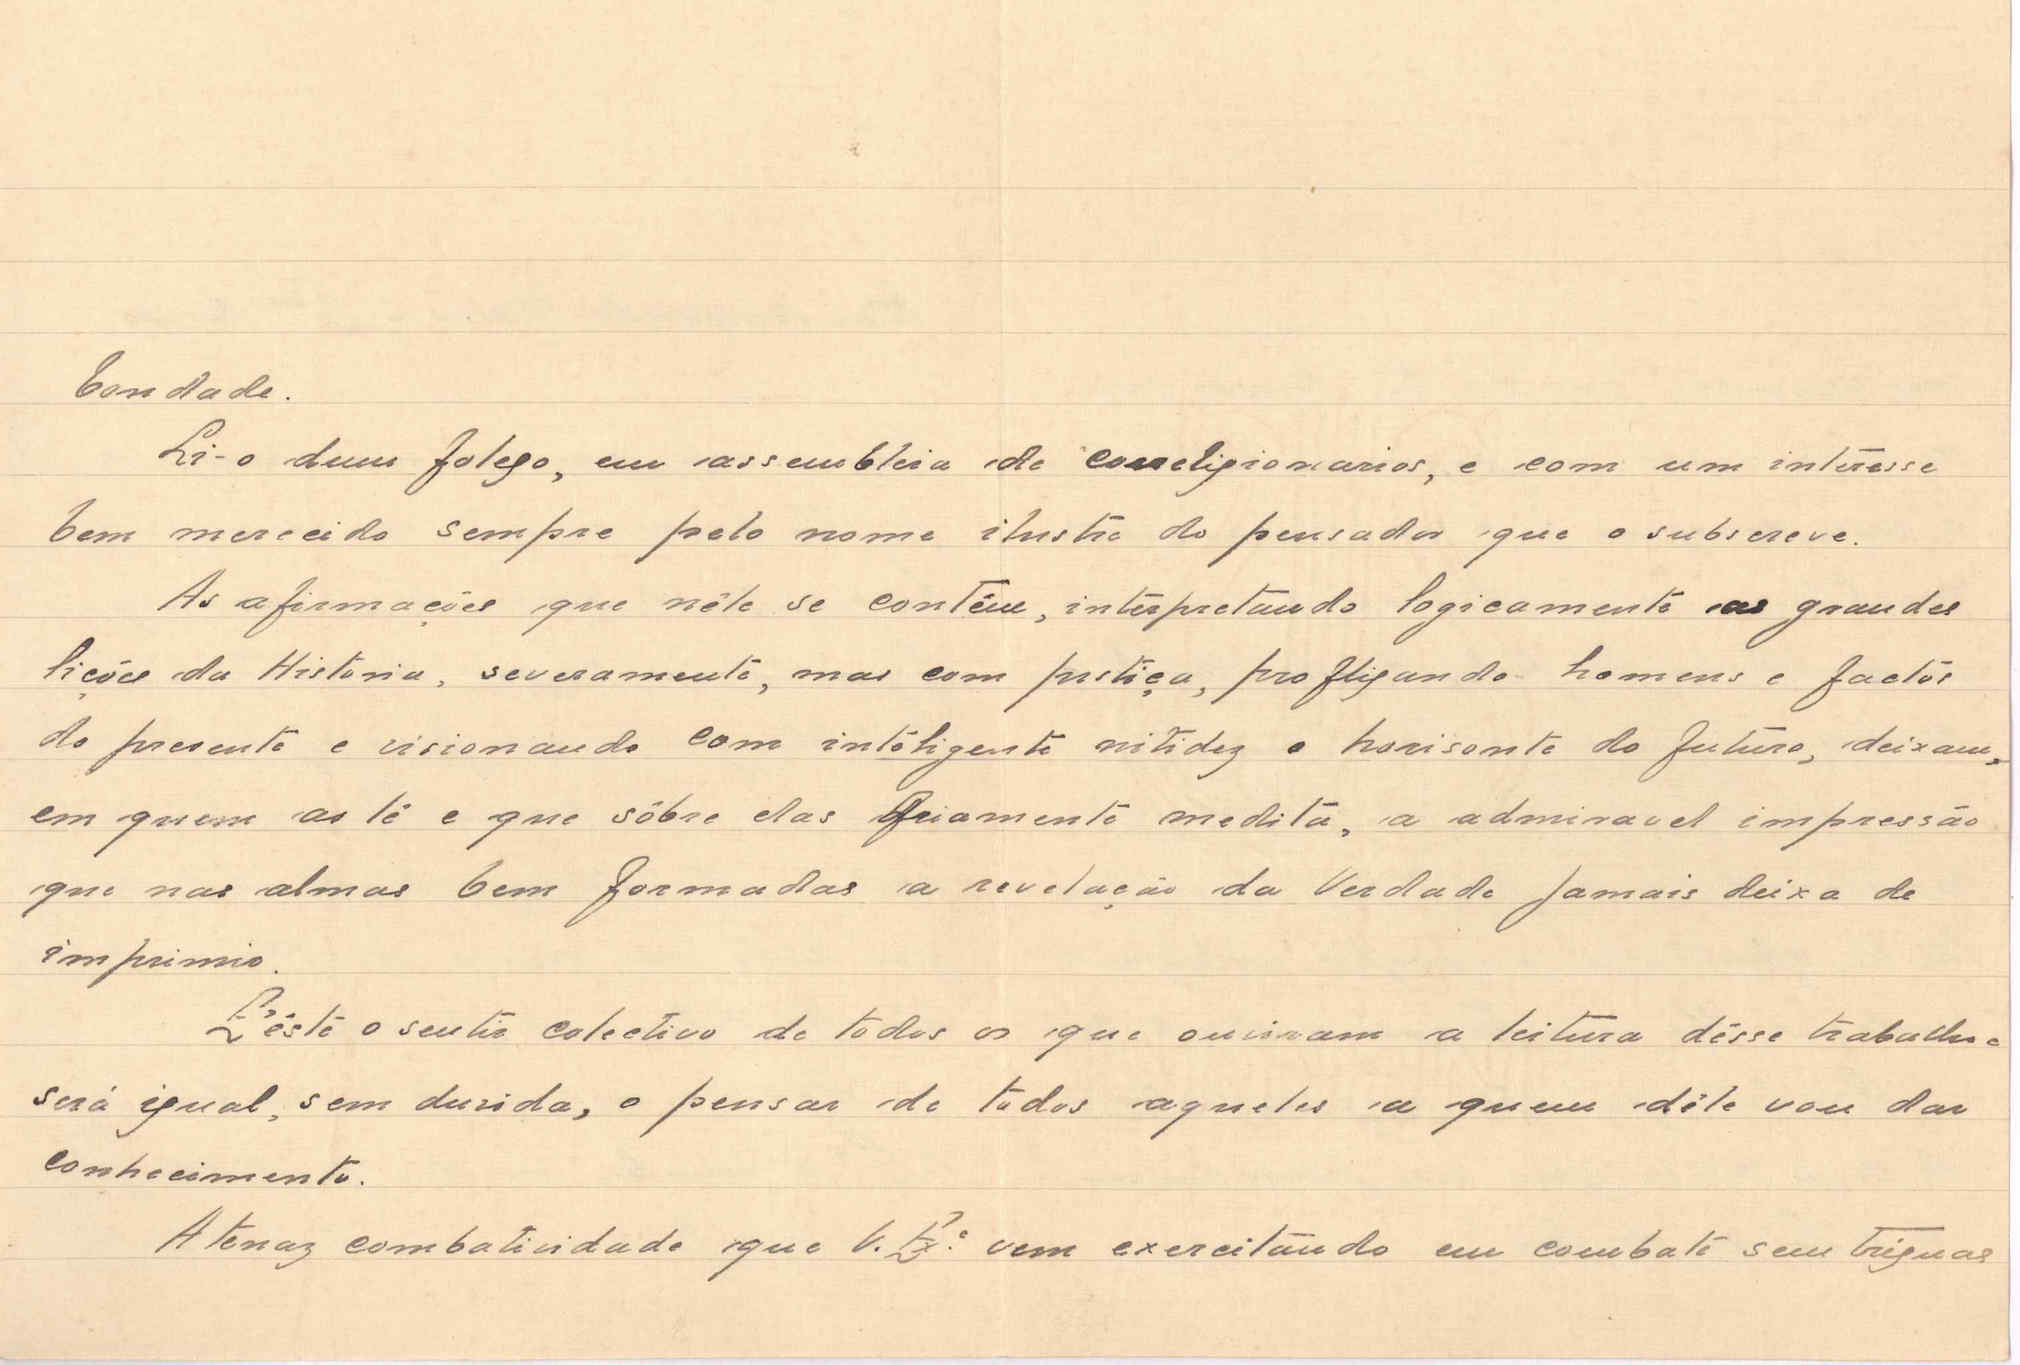 bondade.
Li-o dum folego, em assembleia de correligionarios, e com um interêsse
bem merecido sempre pelo nome ilustre do pensador que o subscreve.
As afirmações que nêle se contêm, interpretando logicamente as grandes
lições da Historia, severamente, mas com justiça, profligando homens e factos
do presente e visionando com inteligente nitidez o horisonte do futuro, deixam,
em quem as lê e que sôbre elas friamente medita, a admiravel impressão
que nas almas bem formadas a revelação da Verdade jamais deixa de
imprimir.
É êste o sentir colectivo de todos os que ouviram a leitura dêsse trabalho e
será igual, sem duvida, o pensar de todos aqueles a quem dêle vou dar
conhecimento.
A tenaz combatividade que V. Ex.ª vem exercitando em combate sem treguas